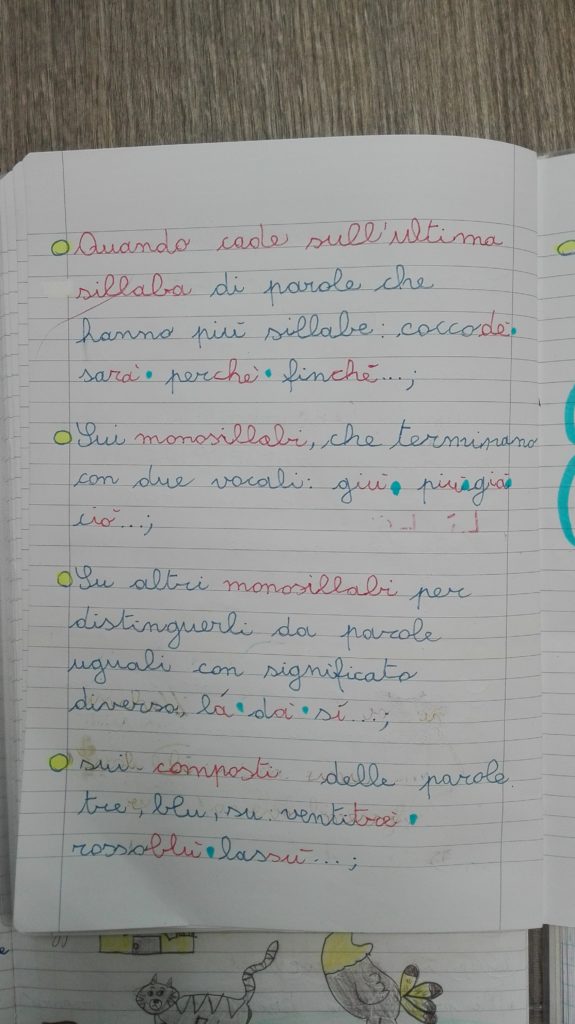 Quando cade sull'ultima
sillaba di parole che
hanno più sillabe: coccodè
sarà perché finché...;
Sui monosillabi, che terminano
con due vocali: giù più già
ciò...;
Su altri monosillabi per
distinguerli da parole
uguali con significato
diverso, là dà sì...;
sui composti delle parole
tre, blu, su: ventitrè
rossoblù lassù...;